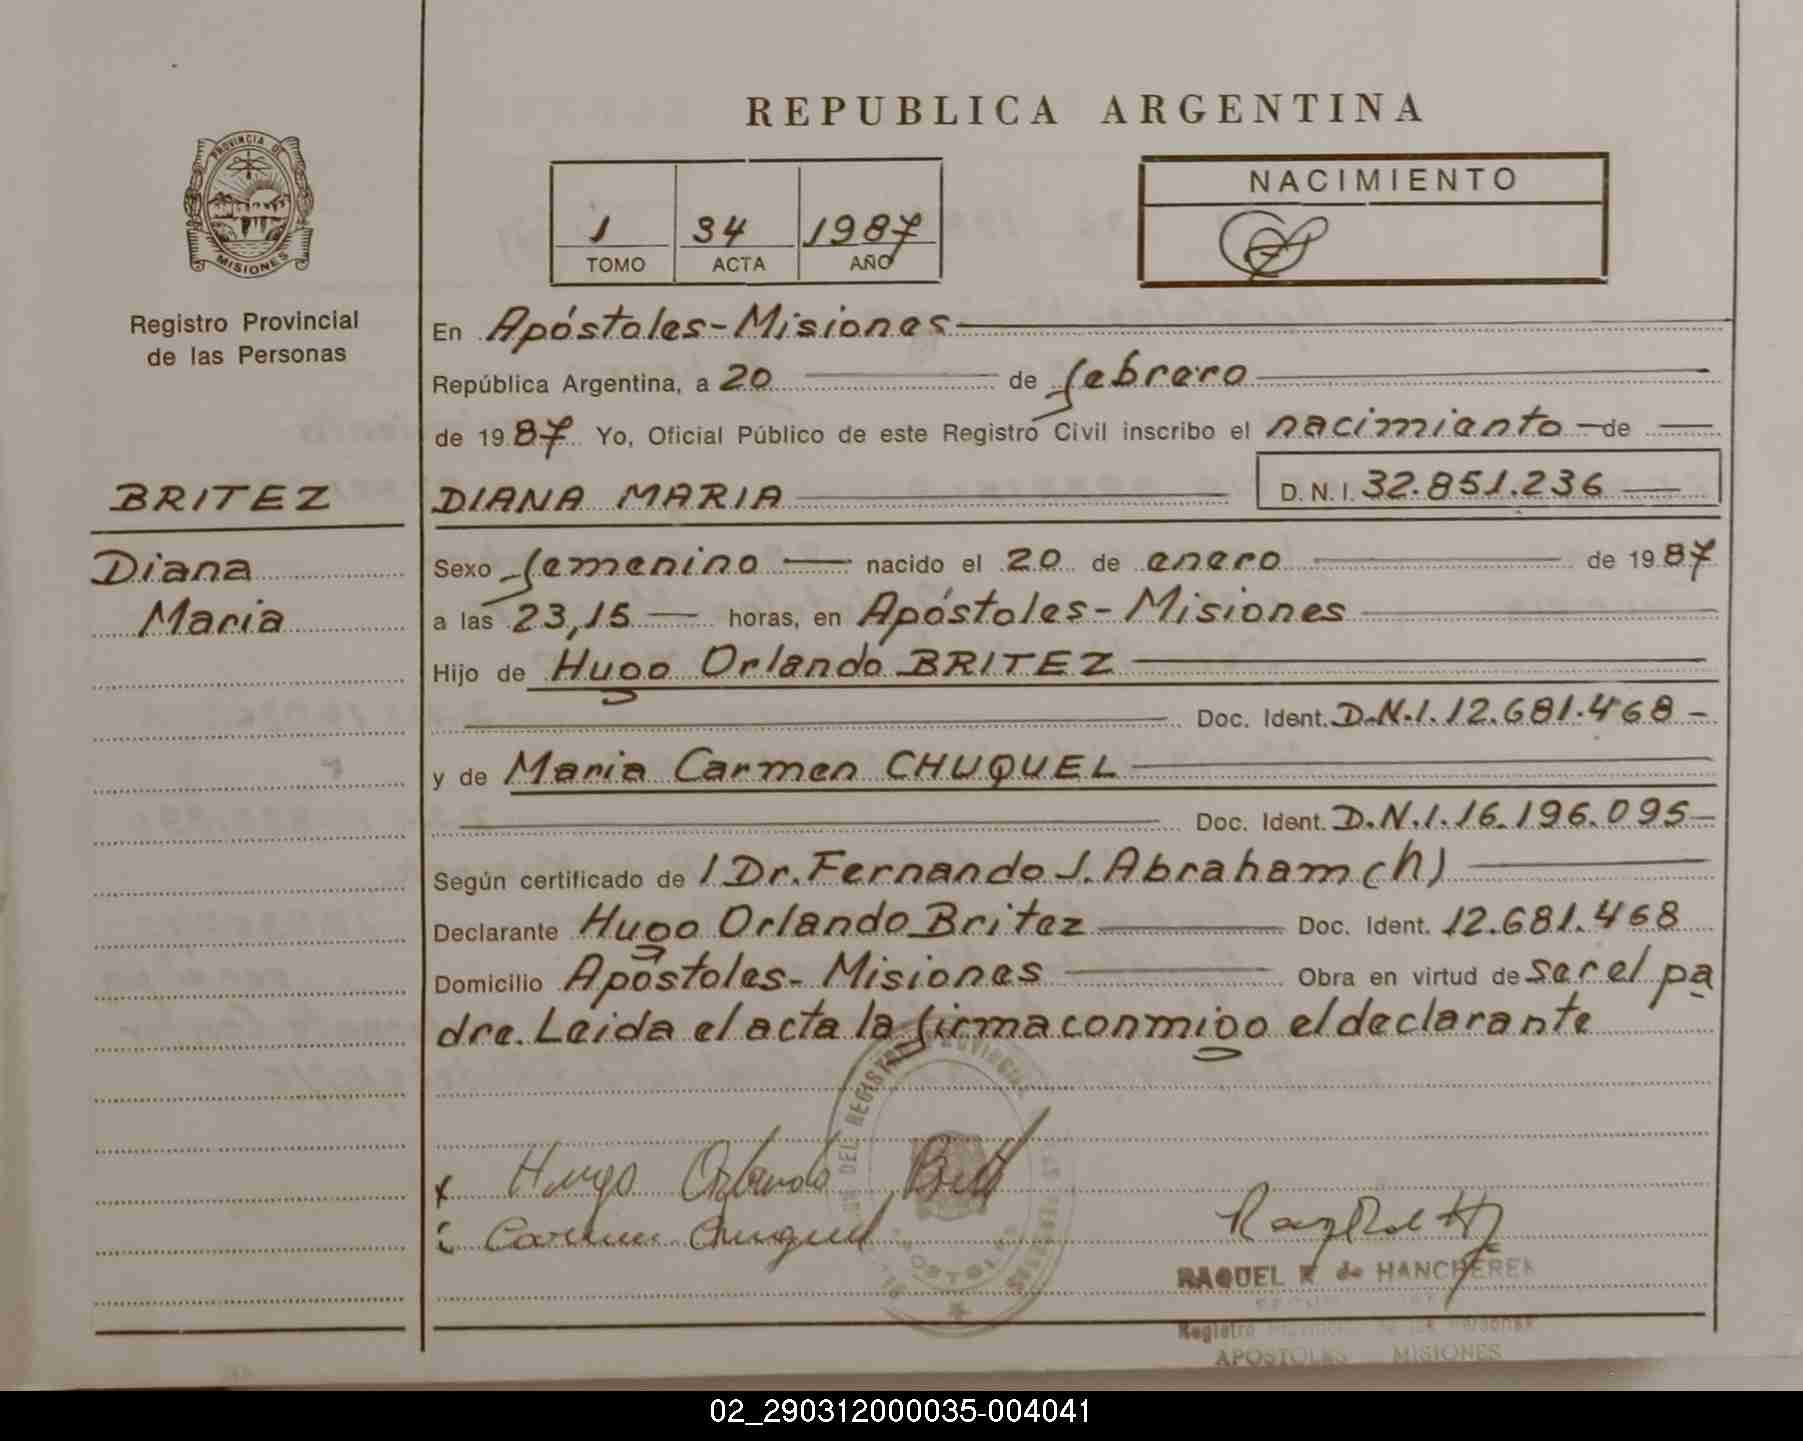 REPUBLICA ARGENTINA
PROVINCIA DE
MISIONES
Registro Provincial
de las Personas
1 34 1987
TOMO ACTA AÑO
NACIMIENTO
En Apóstoles-Misiones
República Argentina, a 20 de febrero
de 1987 Yo, Oficial Público de este Registro Civil inscribo el nacimiento de
BRITEZ DIANA MARIA D.N.I. 32.851.236
Diana
Maria
Sexo femenino nacido el 20 de enero de 1987
a las 23,15 horas, en Apóstoles-Misiones
Hijo de Hugo Orlando BRITEZ
Doc. Ident. D.N.I. 12.681.468
y de Maria Carmen CHUQUEL
Doc. Ident. D.N.I. 16.196.095
Según certificado de / Dr. Fernando J. Abraham (h)
Declarante Hugo Orlando Britez Doc. Ident. 12.681.468
Domicilio Apóstoles-Misiones Obra en virtud de ser el pa
dre. Leida el acta la firma conmigo el declarante
DEL REGISTRO PROVINCIAL
Hugo Orlando Brit
Carmen Chuquel
RAQUEL de HANCHEREK
Registro Provincial de las Personas
APOSTOLES MISIONES
02_290312000035-004041